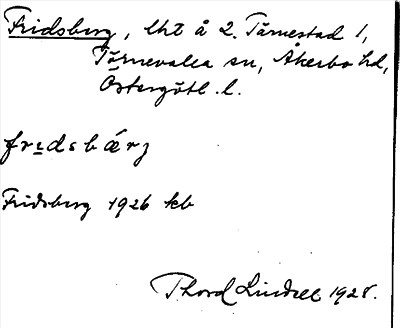 Fridsberg, lht å 2. Tärnestad 1,
Törnevalla sn, Åkerbo hd,
Östergötl. l.
frɪdsbærj
Fridsberg 1926 kb
Thord Lindell 1928.